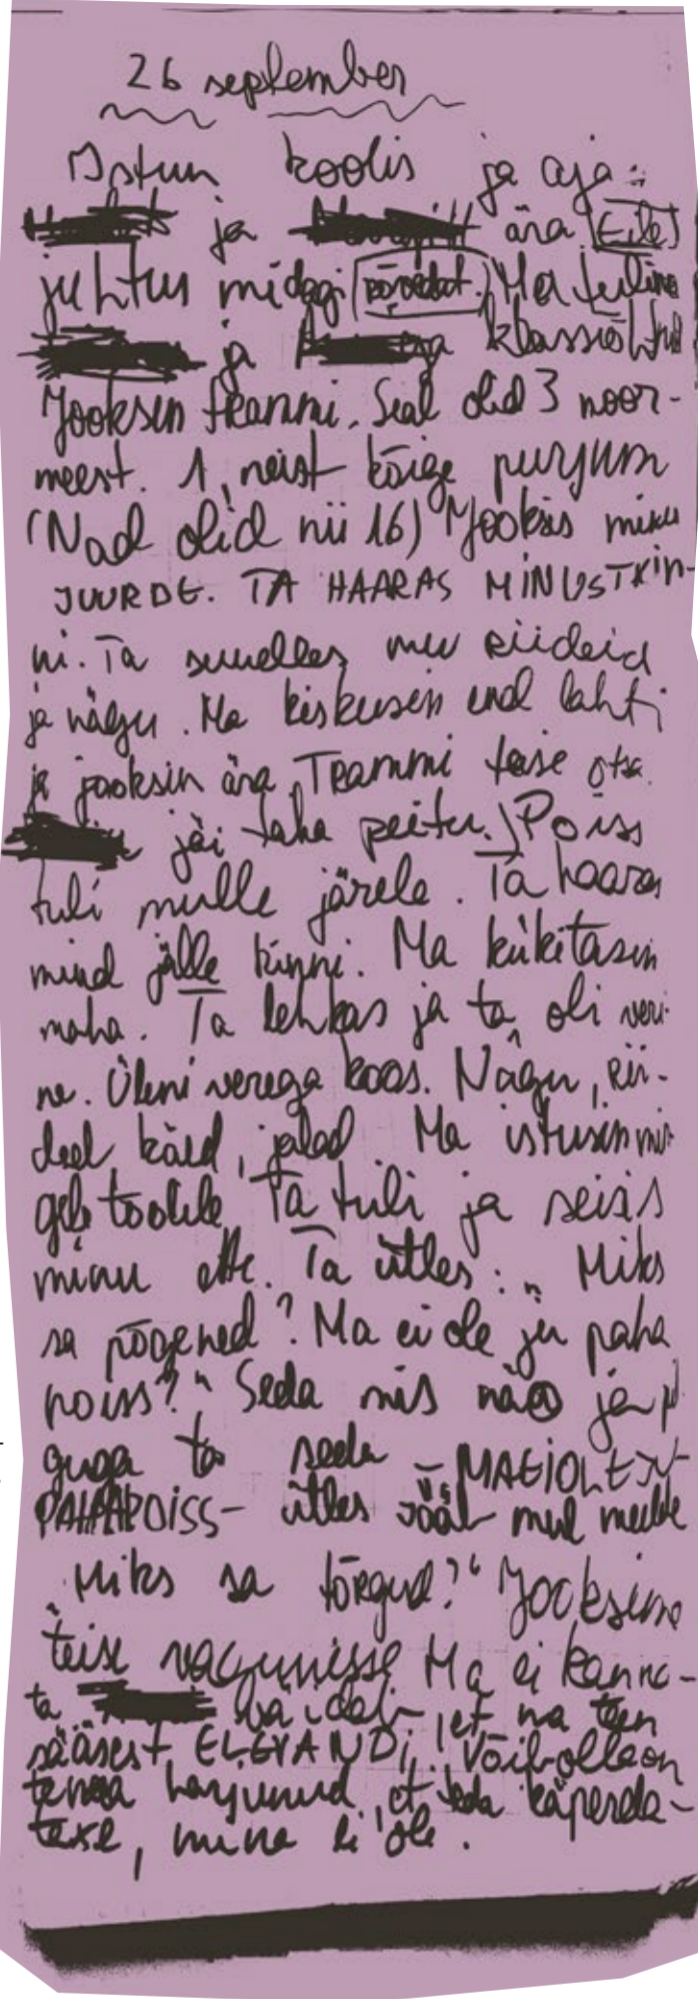 26 september
Istun koolis ja aja
ja ära Eile
juhtus midagiõudet. Ma tulin
ja klassiõhtul
Jooksin trammi. Seal olid 3 noor-
meest. 1 neist kõige purjum
(Nad olid nii 16) Jooksis minu
JUURDE. TA HAARAS MINUST KIN-
ni. Ta suudles mu riideid
ja nägu. Ma kiskusin end lahti
ja jooksin ära, Trammi teise otsa.
jäi taha peitu.) Poiss
tuli mulle järele. Ta haaras
mind jälle kinni. Ma kükitasin
maha. Ta lehkas ja ta oli veri-
ne. Üleni verega koos. Nägu, rii-
ded käed, jalad. Ma istusin
toolile Ta tuli ja seisis
minu ette. Ta ütles: „Miks
sa põgened? Ma ei ole ju paha
poiss?" Seda mis näo ja
guga ta seda – MA EI OLE JU
PAHAPOISS – ütles jääb mul meelde
„Miks sa tõrgud?" Jooksime
teise vagunisse Ma ei kanna-
ta väidab, et ma teen
sääsest ELEVANDI! Võibolla on
tema harjunud, et teda käperda-
takse, mina ei ole.